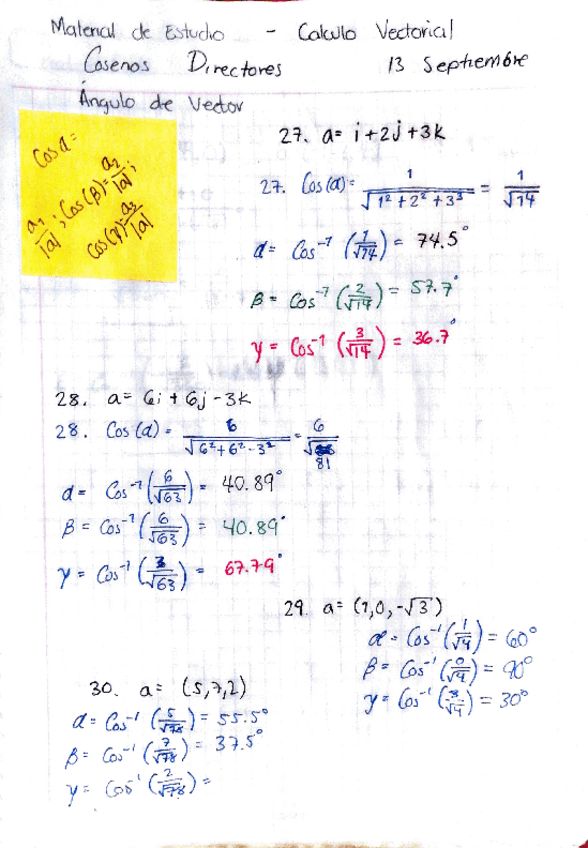 Material de Estudio - Calculo Vectorial
Cosenos Directores 13 Septiembre
Ángulo de Vector
Cos α =
a₁/|a| ; Cos(β) = a₂/|a| ;
cos(γ) = a₃/|a|
27. a = i + 2j + 3k
27. Cos(α) = 1/√(1² + 2² + 3³) = 1/√14
α = Cos⁻¹ (1/√14) = 74.5°
β = Cos⁻¹ (2/√14) = 57.7°
γ = Cos⁻¹ (3/√14) = 36.7°
28. a = 6i + 6j - 3k
28. Cos(α) = 6/√(6² + 6² - 3²) = 6/√81
α = Cos⁻¹ (6/√63) = 40.89°
β = Cos⁻¹ (6/√63) = 40.89°
γ = Cos⁻¹ (3/√63) = 67.79°
29. a = (1, 0, -√3)
α = Cos⁻¹ (1/√4) = 60°
β = Cos⁻¹ (0/√4) = 90°
γ = Cos⁻¹ (3/√4) = 30°
30. a = (5, 7, 2)
α = Cos⁻¹ (5/√78) = 55.5°
β = Cos⁻¹ (7/√78) = 37.5°
γ = Cos⁻¹ (2/√78) =